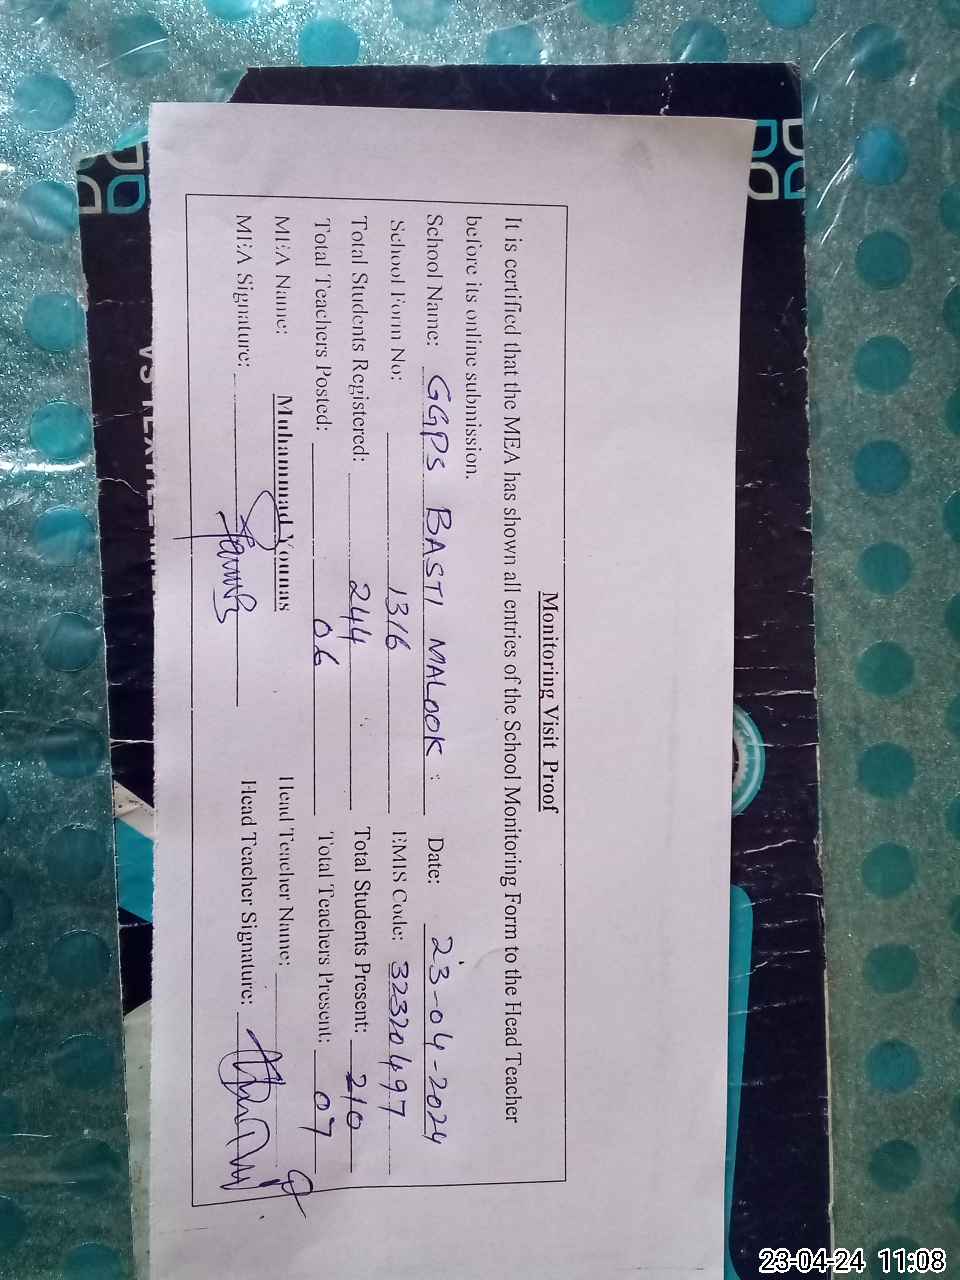 Monitoring Visit Proof
It is certified that the MEA has shown all entries of the School Monitoring Form to the Head Teacher
before its online submission.
School Name: GGPS BASTI MALOOK : Date: 23-04-2024
School Form No: 1316 EMIS Code: 32320497
Total Students Registered: 244 Total Students Present: 210
Total Teachers Posted: 06 Total Teachers Present: 07
MEA Name: Muhammad Younas Head Teacher Name:
MEA Signature: Head Teacher Signature:
23-04-24 11:08